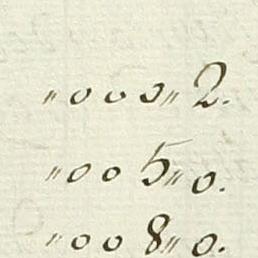 "003"2.
"005"0.
"008"0.